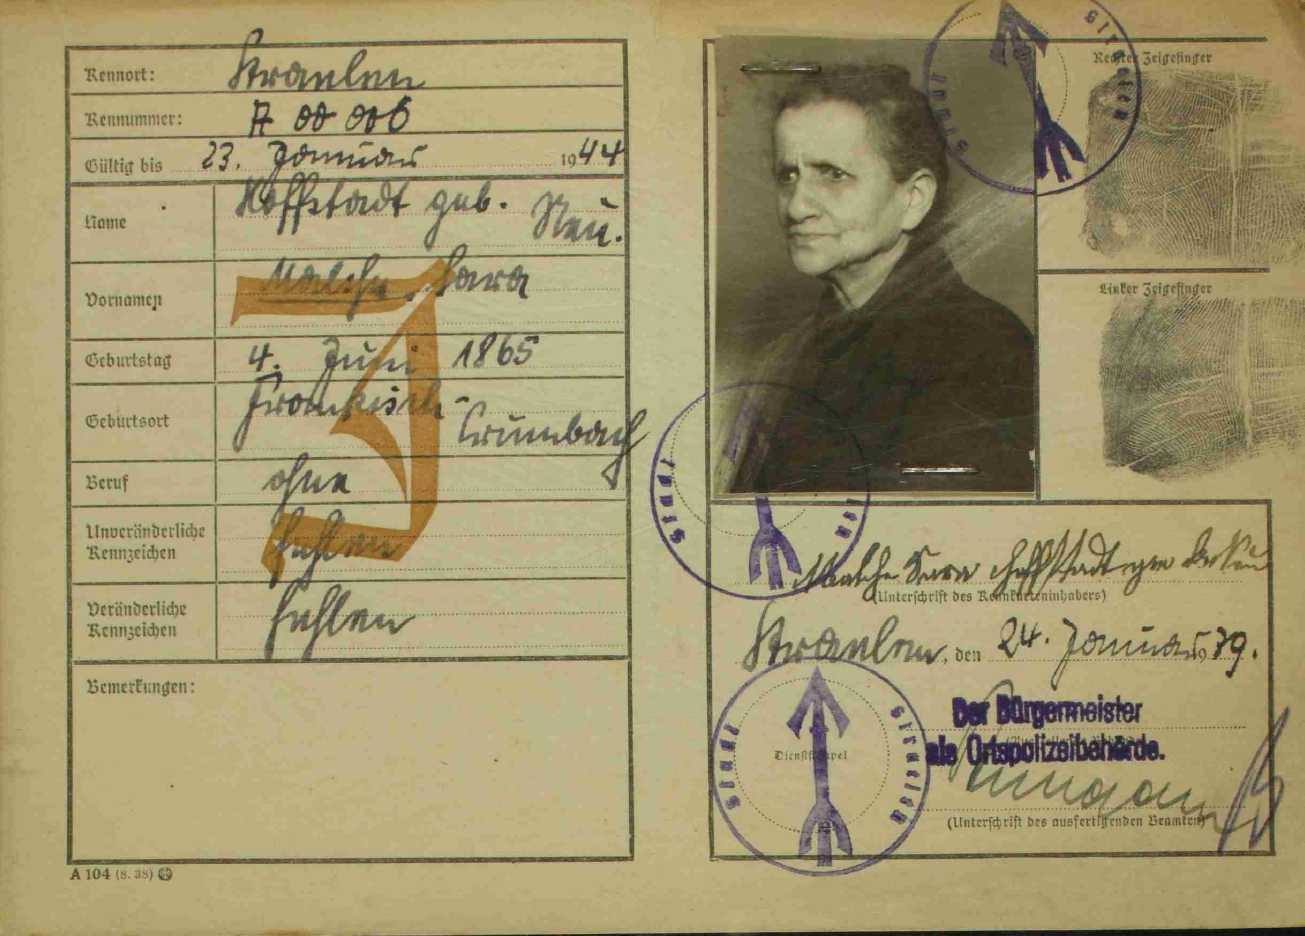 Kennort: Straelen
Kennummer: A 00 006
Gültig bis 23. Januar 1944
Name Hoffstadt geb. Neu.
Vornamen Malche, Sara
J
Geburtstag 4. Juni 1865
Geburtsort Fränkisch-
Crumbach
Beruf ohne
Unveränderliche
Kennzeichen fehlen
Veränderliche
Kennzeichen fehlen
Bemerkungen:
A 104 (8. 38)
Stadt Straelen
Rechter Zeigefinger
Linker Zeigefinger
Stadt Straelen
Malche Sara Hoffstadt
(Unterschrift des Kennkarteninhabers)
Straelen, den 24. Januar 1939.
Stadt Straelen
Dienststempel
Der Bürgermeister
als Ortspolizeibehörde.
(Unterschrift des ausfertigenden Beamten)